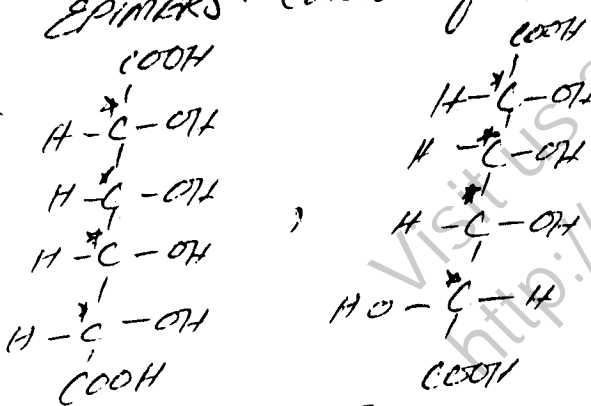 EPIMERS
COOH COOH
H - C* - OH H - C* - OH
H - C* - OH H - C* - OH
H - C* - OH , H - C* - OH
H - C* - OH HO - C* - H
COOH COOH
Visit us
http:/